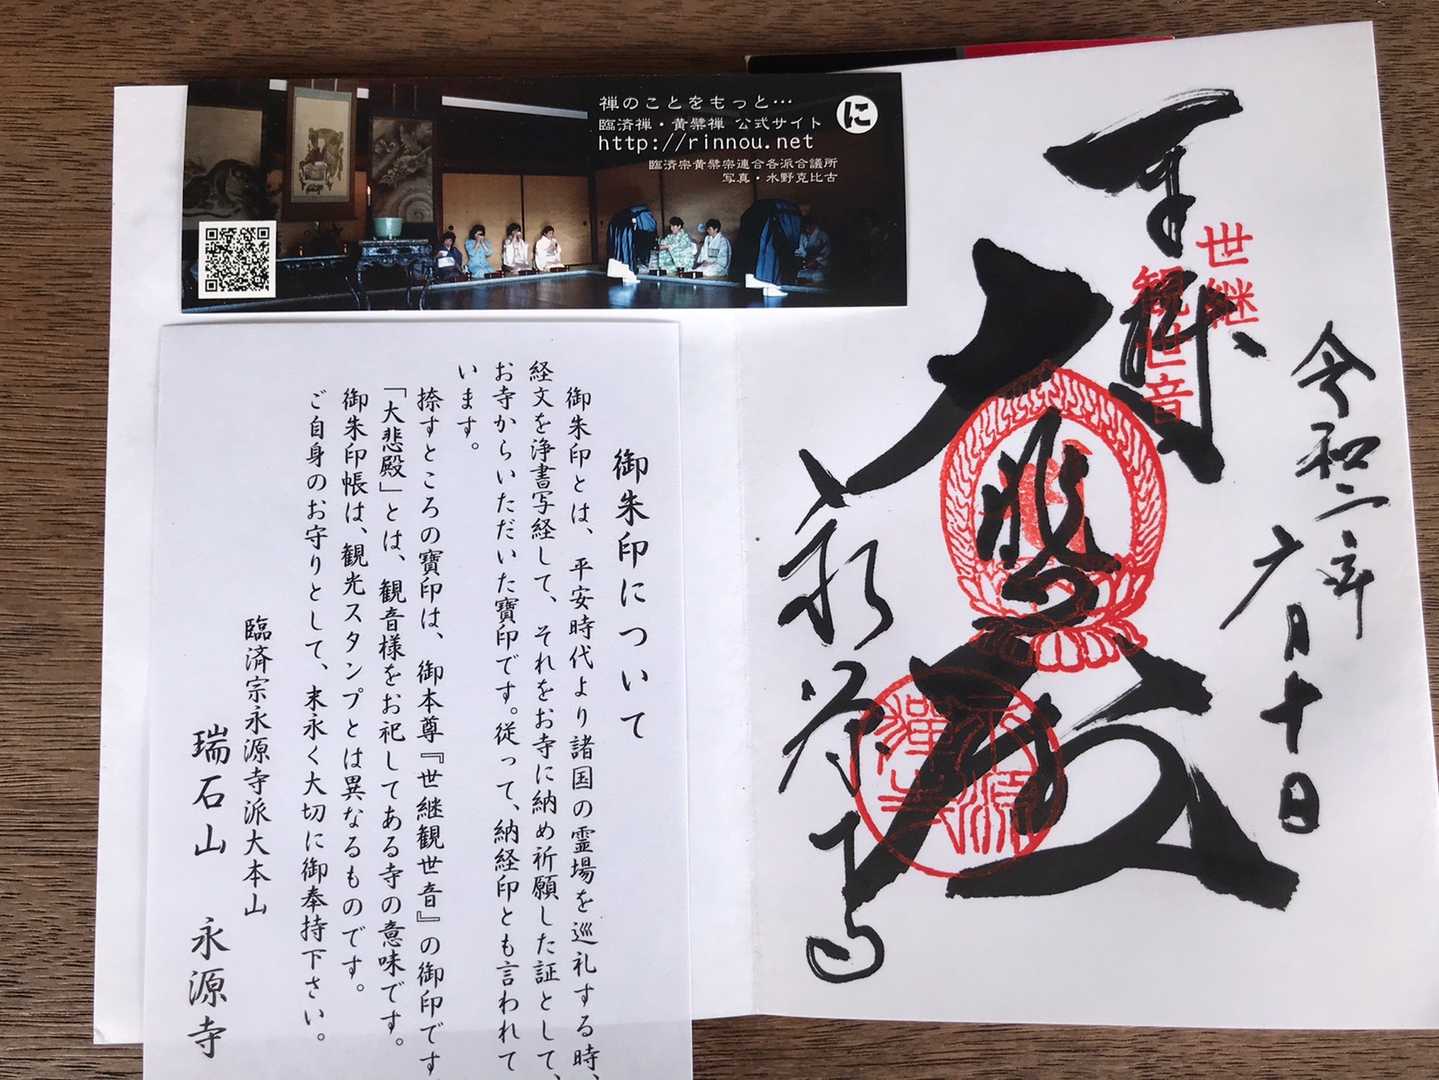 禅のことをもっと…
臨済禅・黄檗禅 公式サイト
http://rinnou.net
臨済宗黄檗宗連合各派合議所
写真・水野克比古
に
奉拝
世継
観世音
令和二年
六月十日
大悲殿
永源寺
御朱印について
御朱印とは、平安時代より諸国の霊場を巡礼する時、
経文を浄書写経して、それをお寺に納め祈願した証として、
お寺からいただいた寶印です。従って、納経印とも言われて
います。
捺すところの寶印は、御本尊『世継観世音』の御印です
「大悲殿」とは、観音様をお祀してある寺の意味です。
御朱印帳は、観光スタンプとは異なるものです。
ご自身のお守りとして、末永く大切に御奉持下さい。
臨済宗永源寺派大本山
瑞石山 永源寺